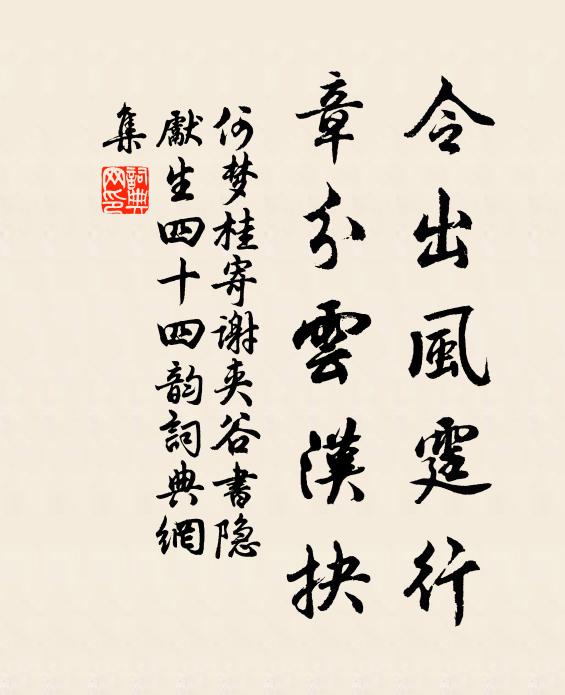 令出風霆行
章分雲漢抉
何梦桂寄谢夹谷書隐
獻生四十四韵詞典網
集
詞典
网印